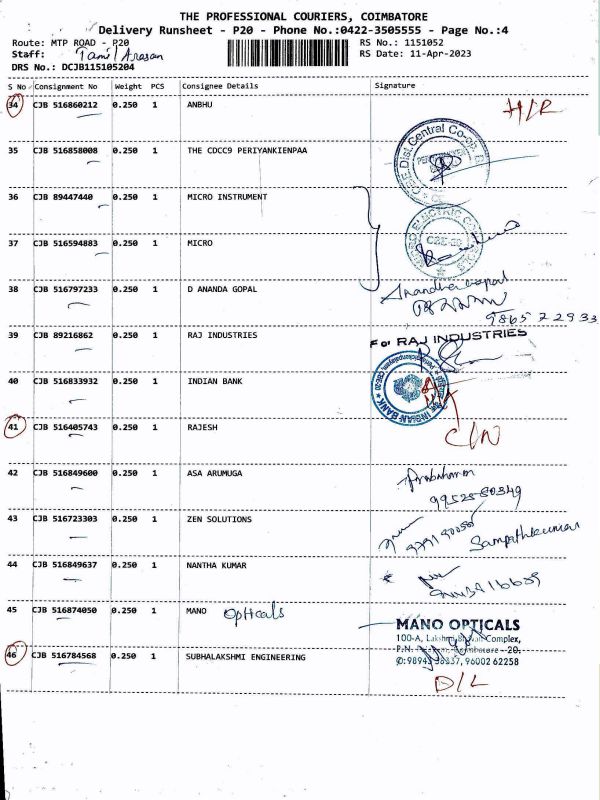 THE PROFESSIONAL COURIERS, COIMBATORE
Delivery Runsheet - P20 - Phone No.:0422-3505555 - Page No.:4
Route: MTP ROAD - P20 RS No.: 1151052
Staff: Tamil Arasan RS Date: 11-Apr-2023
DRS No.: DCJB115105204
S No Consignment No Weight PCS Consignee Details Signature
34 CJB 516860212 0.250 1 ANBHU H/R
35 CJB 516858008 0.250 1 THE CDCC9 PERIYANKIENPAA
36 CJB 89447440 0.250 1 MICRO INSTRUMENT
37 CJB 516594883 0.250 1 MICRO
38 CJB 516797233 0.250 1 D ANANDA GOPAL
39 CJB 89216862 0.250 1 RAJ INDUSTRIES For RAJ INDUSTRIES
40 CJB 516833932 0.250 1 INDIAN BANK INDIAN BANK
41 CJB 516405743 0.250 1 RAJESH C/N
42 CJB 516849600 0.250 1 ASA ARUMUGA
43 CJB 516723303 0.250 1 ZEN SOLUTIONS Sampathkumar
44 CJB 516849637 0.250 1 NANTHA KUMAR
45 CJB 516874050 0.250 1 MANO Opticals
MANO OPTICALS
100-A, Complex,
96002 62258
46 CJB 516784568 0.250 1 SUBHALAKSHMI ENGINEERING D/L